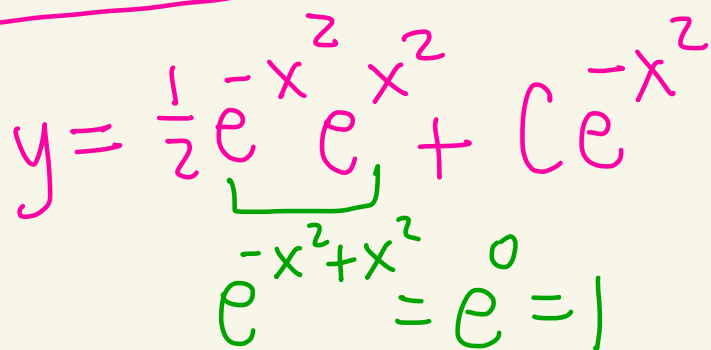 y = 1/2 e^{-x^2} e^{x^2} + C e^{-x^2}
e^{-x^2+x^2} = e^0 = 1